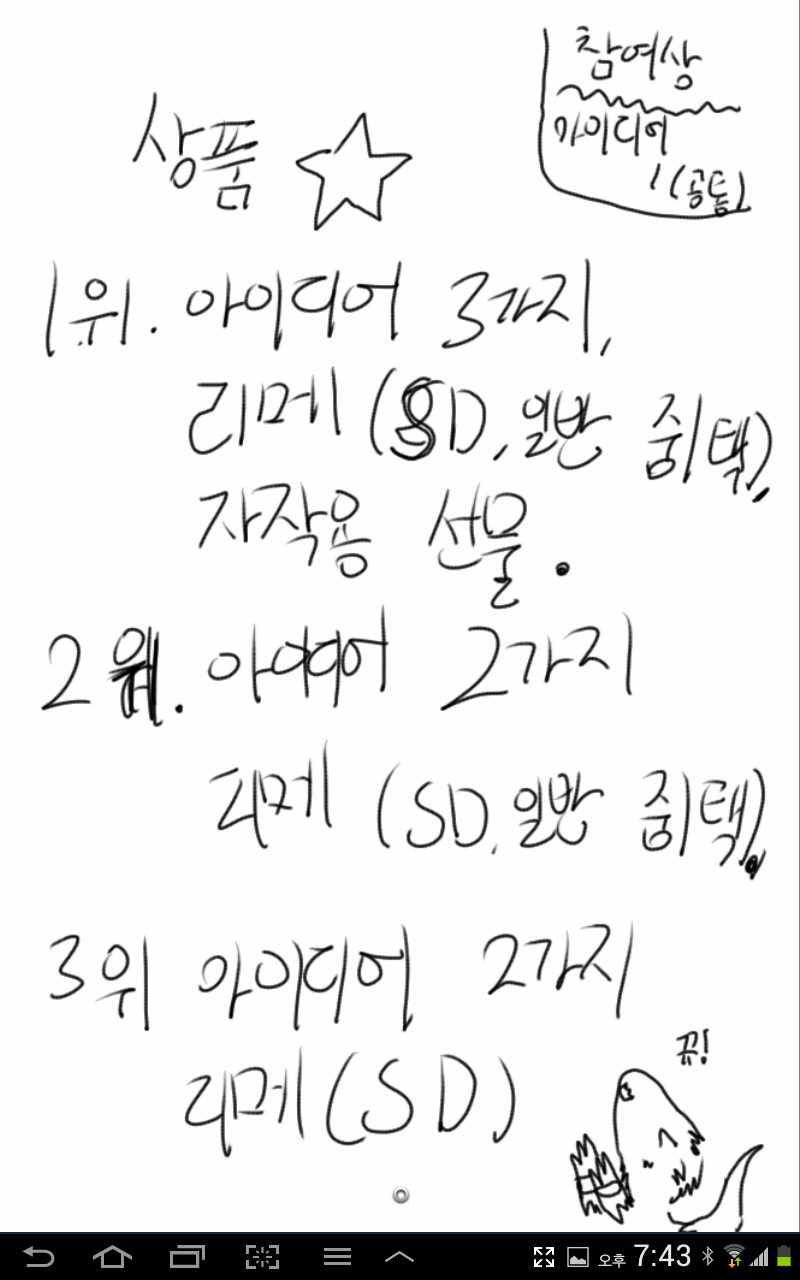 참여상
아이디어
1(공통)
상품
1위. 아이디어 3가지,
리메(SD, 일반 중 택),
자작용 선물.
2위. 아이디어 2가지
리메(SD, 일반 중 택).
3위 아이디어 2가지
리메(SD)
뀨!
오후 7:43